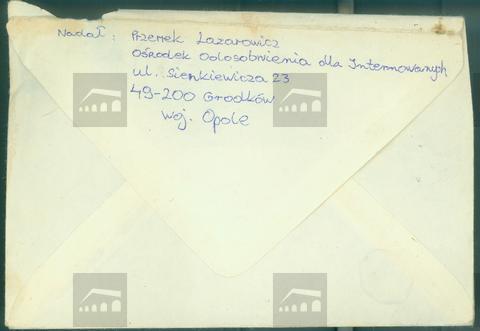 Nadał: Przemek Lazarowicz
Ośrodek Odosobnienia dla Internowanych
ul. Sienkiewicza 23
49-200 Grodków
woj. Opole